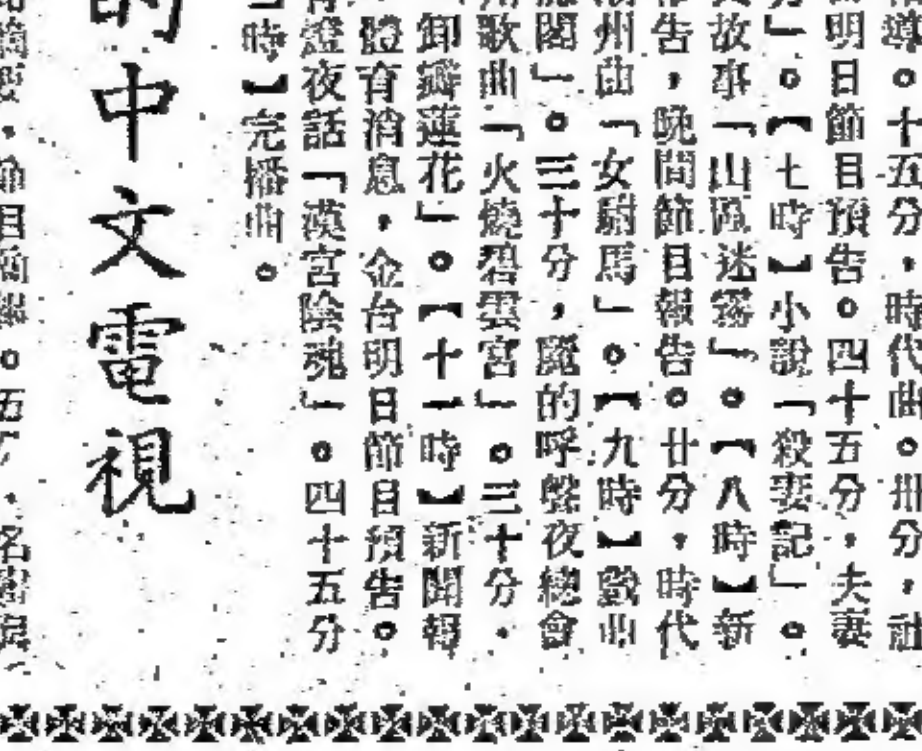 導。十五分,時代曲。卅分,社
明日節目預告。四十五分,夫妻
」。【七時】小說「殺妻記」。
故事「山區迷霧」。【八時】新
告,晚間節目報告。廿分,時代
州曲「女駙馬」。【九時】戲曲
閣」。三十分,麗的呼聲夜總會
歌曲「火燒碧雲宮」。三十分,
卸瓣蓮花」。【十一時】新聞報
體育消息,金台明日節目預告。
燈夜話「漢宮陰魂」。四十五分
時】完播曲。
的中文電視
節目簡報。五
名